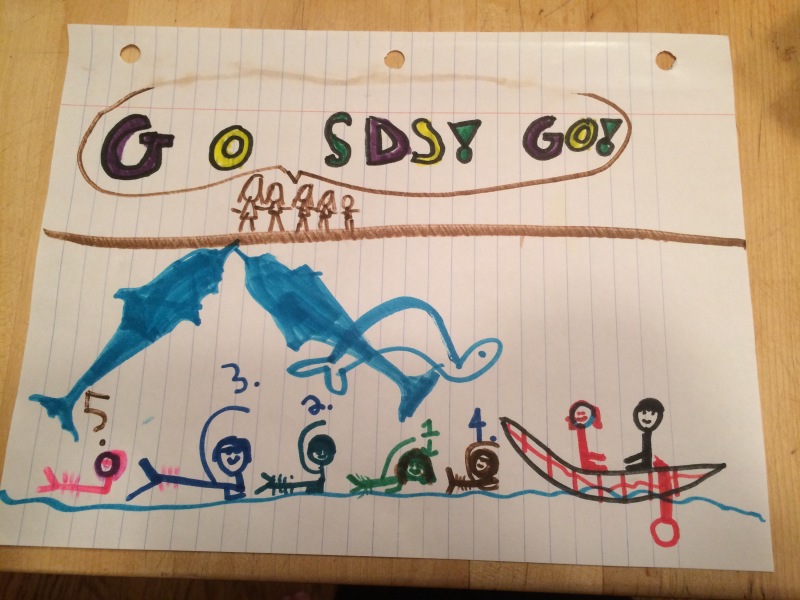 GO SDS! GO!
5. 3. 2. 1 4.